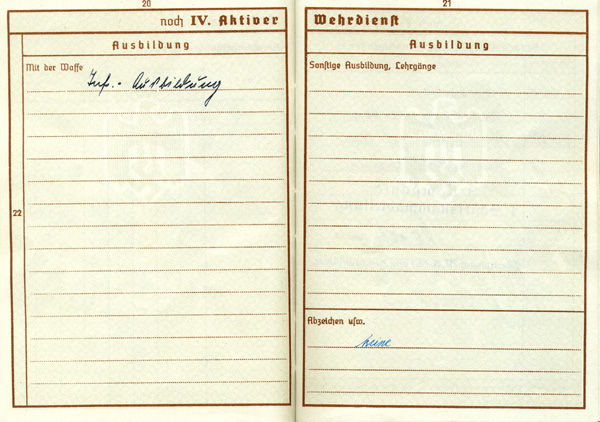 20
noch IV. Aktiver
Ausbildung
Mit der Waffe
Inf.- Ausbildung
22
21
Wehrdienst
Ausbildung
Sonstige Ausbildung, Lehrgänge
Abzeichen usw.
keine